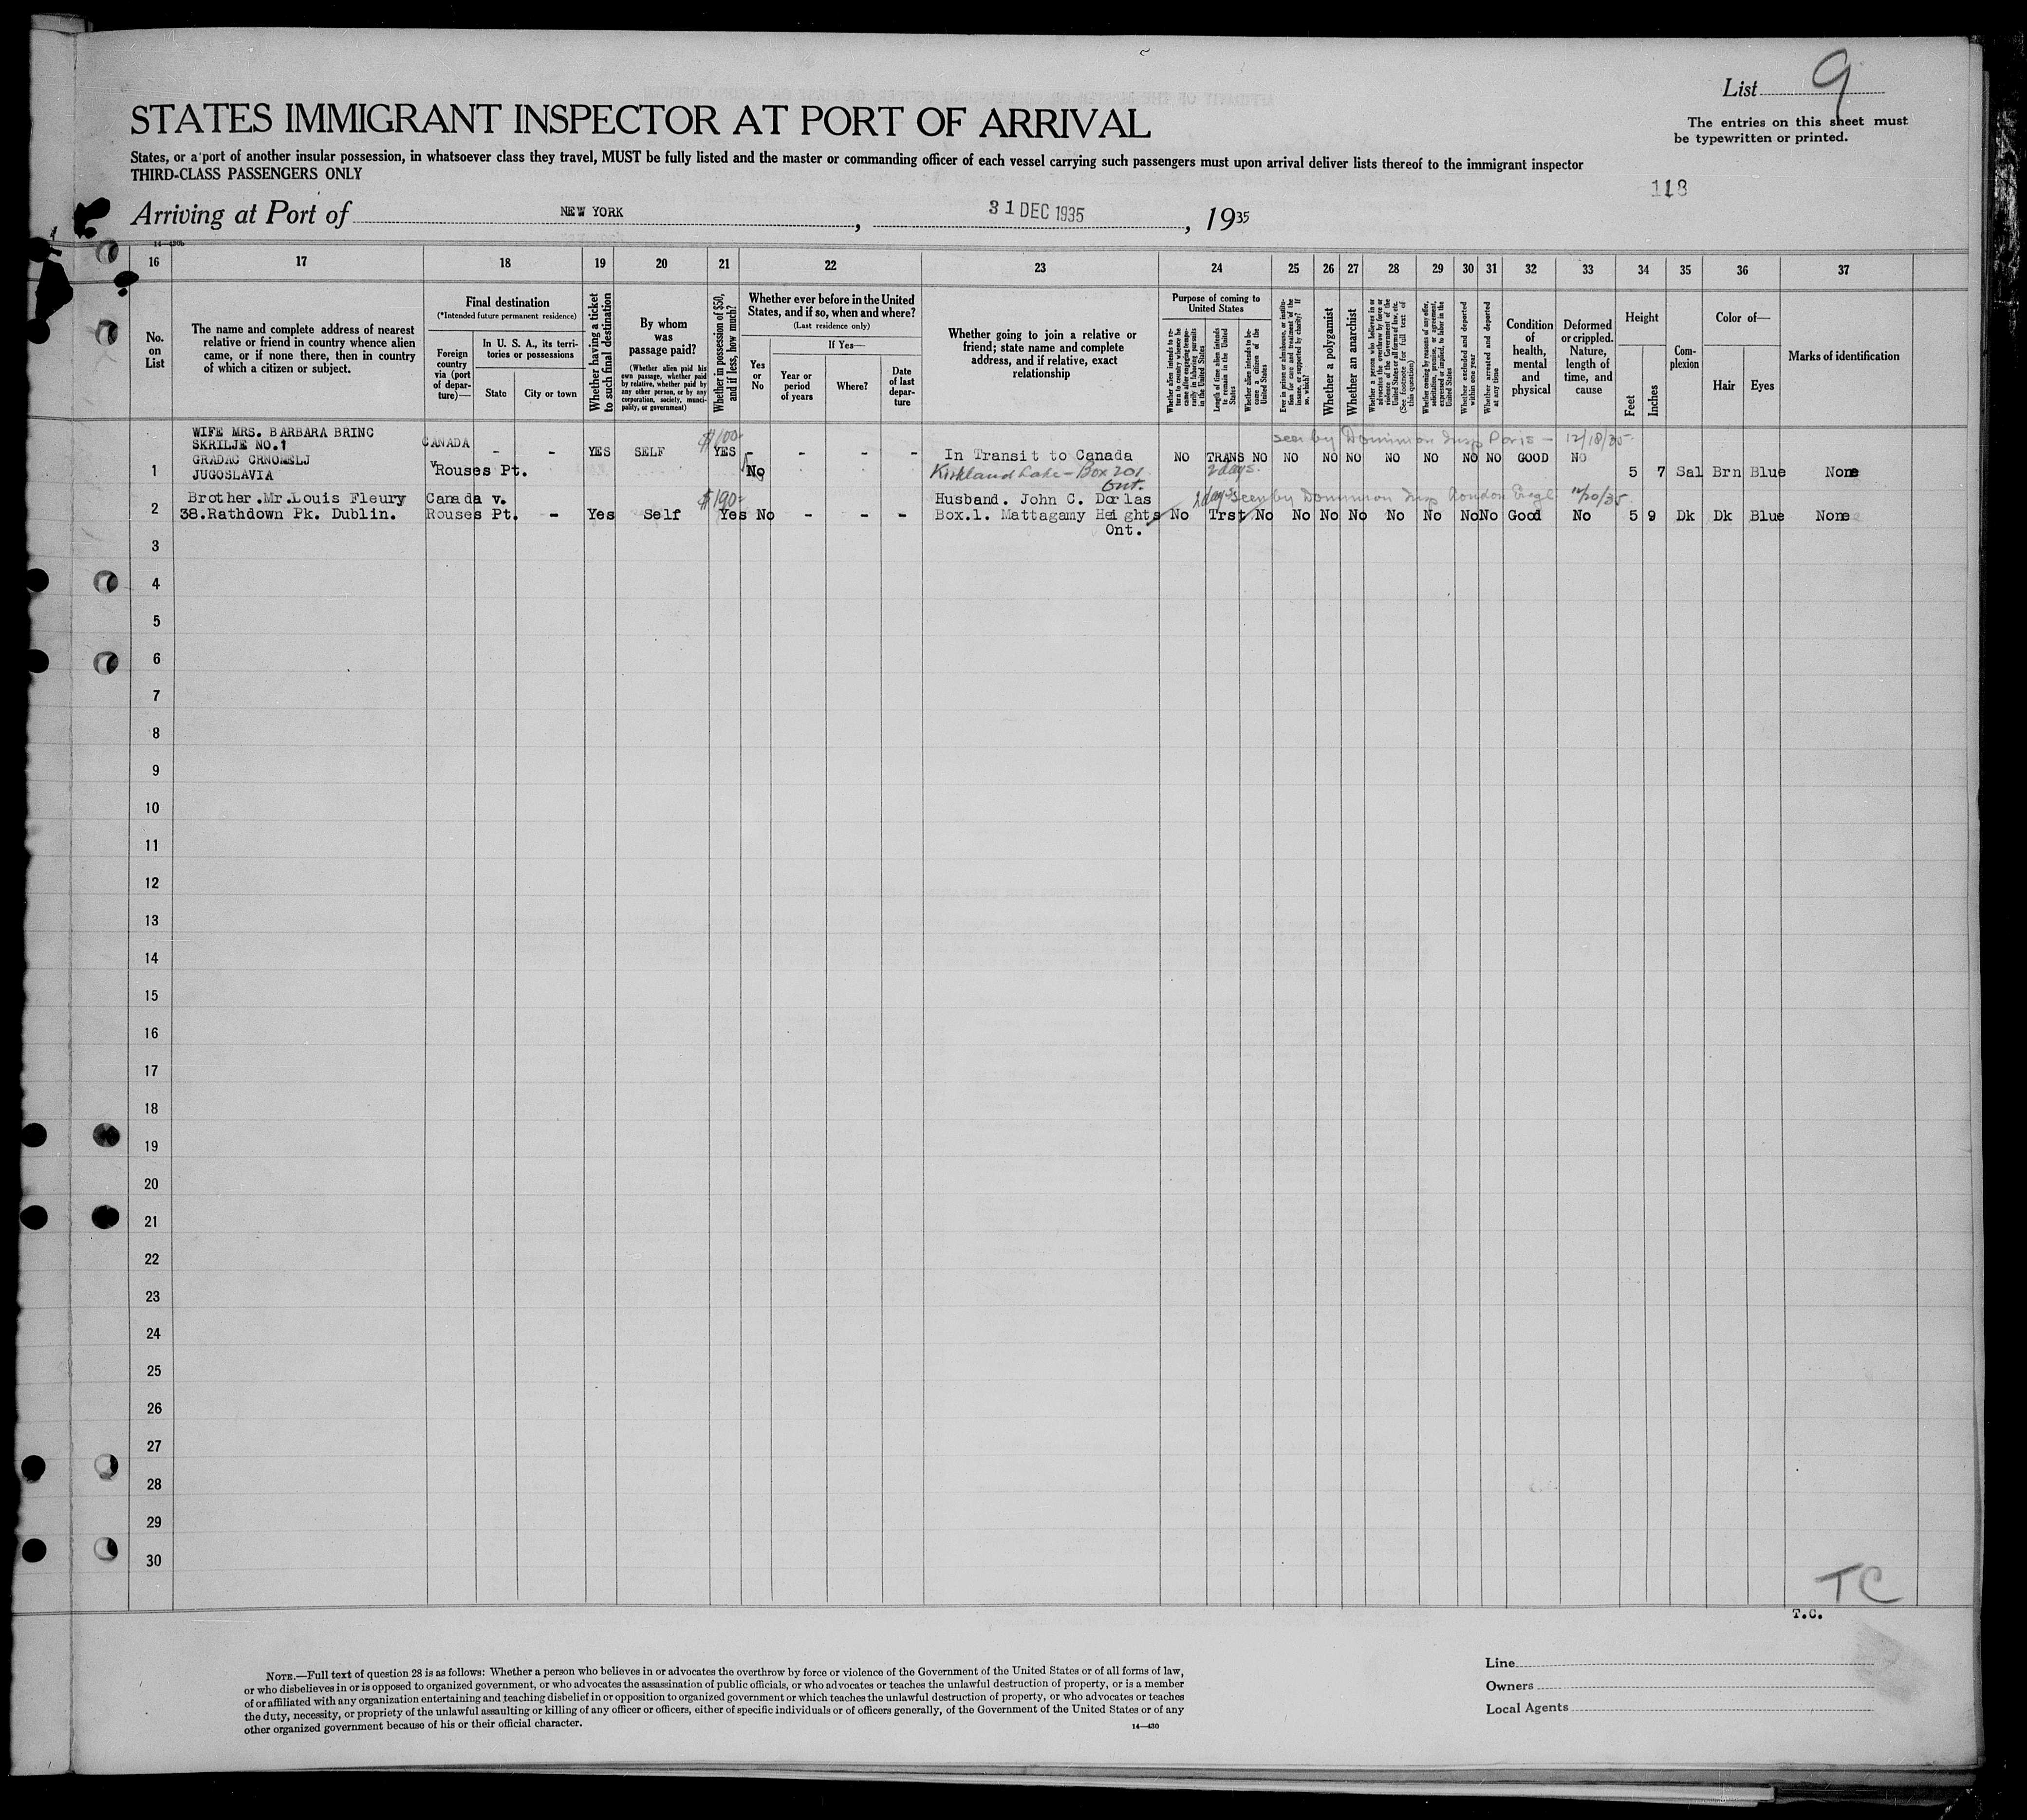 List 9
STATES IMMIGRANT INSPECTOR AT PORT OF ARRIVAL
The entries on this sheet must
be typewritten or printed.
States, or a port of another insular possession, in whatsoever class they travel, MUST be fully listed and the master or commanding officer of each vessel carrying such passengers must upon arrival deliver lists thereof to the immigrant inspector
THIRD-CLASS PASSENGERS ONLY
118
Arriving at Port of NEW YORK, 31 DEC 1935, 1935
14—430b
16 17 18 19 20 21 22 23 24 25 26 27 28 29 30 31 32 33 34 35 36 37
No.
on
List
The name and complete address of nearest
relative or friend in country whence alien
came, or if none there, then in country
of which a citizen or subject.
Final destination
(*Intended future permanent residence)
Foreign
country
via (port
of depar-
ture)—
In U. S. A., its terri-
tories or possessions
State
City or town
Whether having a ticket
to such final destination
By whom
was
passage paid?
(Whether alien paid his
own passage, whether paid
by relative, whether paid by
any other person, or by any
corporation, society, munici-
pality, or government)
Whether in possession of $50,
and if less, how much?
Whether ever before in the United
States, and if so, when and where?
(Last residence only)
Yes
or
No
If Yes—
Year or
period
of years
Where?
Date
of last
depar-
ture
Whether going to join a relative or
friend; state name and complete
address, and if relative, exact
relationship
Purpose of coming to
United States
Whether alien intends to re-
turn to country whence he
came after engaging tempo-
rarily in laboring pursuits
in the United States
Length of time alien intends
to remain in the United
States
Whether alien intends to be-
come a citizen of the
United States
Ever in prison or almshouse, or institu-
tion for care and treatment of the
insane, or supported by charity? If
so, which?
Whether a polygamist
Whether an anarchist
Whether a person who believes in or
advocates the overthrow by force or
violence of the Government of the
United States or all forms of law, etc.
(See footnote for full text of
this question.)
Whether coming by reasons of any offer,
solicitation, promise, or agreement,
expressed or implied, to labor in the
United States
Whether excluded and deported
within one year
Whether arrested and deported
at any time
Condition
of
health,
mental
and
physical
Deformed
or crippled.
Nature,
length of
time, and
cause
Height
Feet
Inches
Com-
plexion
Color of—
Hair
Eyes
Marks of identification
WIFE MRS. BARBARA BRINC
SKRILJE NO.1
GRADAC CRNOMELJ
JUGOSLAVIA
1 CANADA
vRouses Pt. - - YES SELF $100- YES - No - - -
In Transit to Canada
Kirkland Lake - Box 201
Ont.
seen by Dominion Insp Paris - 12/18/35-
NO TRANS NO NO NO NO NO NO NO NO GOOD NO
2 days.
5 7 Sal Brn Blue None
Brother.Mr.Louis Fleury
2 38.Rathdown Pk. Dublin.
Canada v.
Rouses Pt. - Yes Self $190- Yes No - - -
Husband. John C. Dorlas
Box.1. Mattagamy Heights
Ont.
2 days seen by Dominion Insp London Engl 12/20/35-
No Trst No No No No No No No No Good No 5 9 Dk Dk Blue None
3
4
5
6
7
8
9
10
11
12
13
14
15
16
17
18
19
20
21
22
23
24
25
26
27
28
29
30
TC
T.C.
NOTE.—Full text of question 28 is as follows: Whether a person who believes in or advocates the overthrow by force or violence of the Government of the United States or of all forms of law,
or who disbelieves in or is opposed to organized government, or who advocates the assassination of public officials, or who advocates or teaches the unlawful destruction of property, or is a member
of or affiliated with any organization entertaining and teaching disbelief in or opposition to organized government or which teaches the unlawful destruction of property, or who advocates or teaches
the duty, necessity, or propriety of the unlawful assaulting or killing of any officer or officers, either of specific individuals or of officers generally, of the Government of the United States or of any
other organized government because of his or their official character.
14—430
Line
Owners
Local Agents